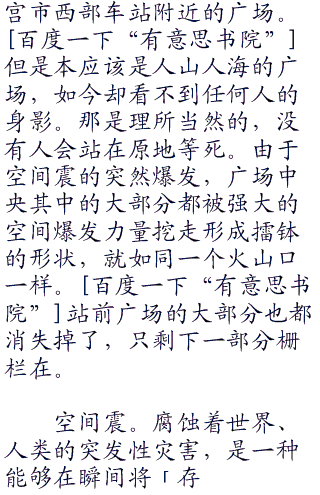 宫市西部车站附近的广场。
[百度一下“有意思书院”]
但是本应该是人山人海的广
场，如今却看不到任何人的
身影。那是理所当然的，没
有人会站在原地等死。由于
空间震的突然爆发，广场中
央其中的大部分都被强大的
空间爆发力量挖走形成擂钵
的形状，就如同一个火山口
一样。[百度一下“有意思书
院”]站前广场的大部分也都
消失掉了，只剩下一部分栅
栏在。
空间震。腐蚀着世界、
人类的突发性灾害，是一种
能够在瞬间将「存